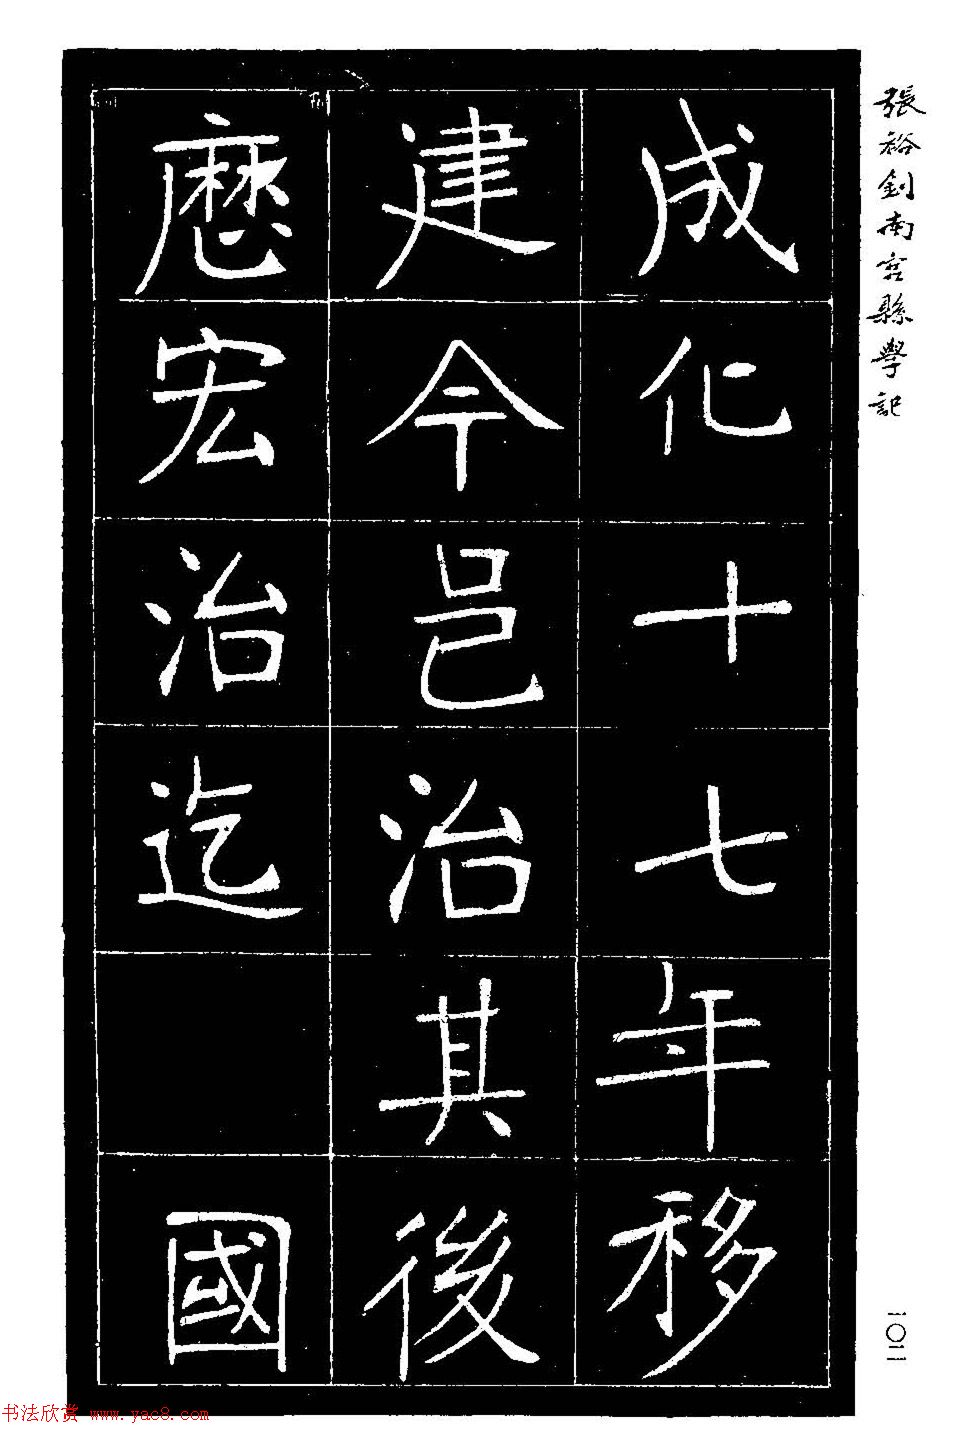 張裕釗南宮縣學記
成化十七年移
建今邑治其後
歷宏治迄 國
一〇二
书法欣赏 www.yac8.com